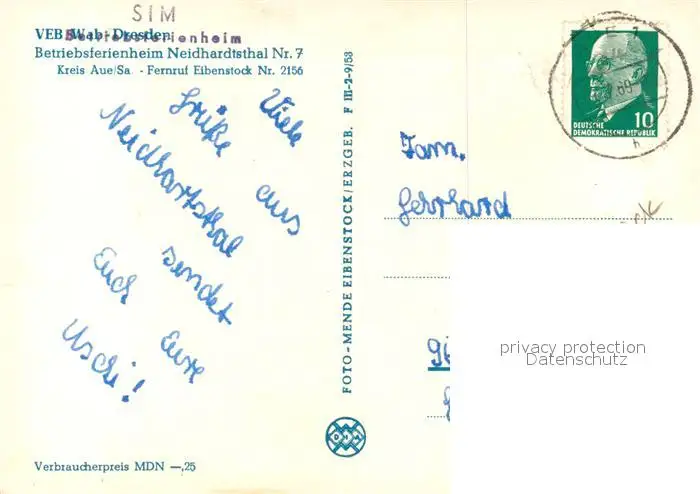 SIM
VEB Wab Dresden
Betriebsferienheim
Betriebsferienheim Neidhardtsthal Nr. 7
Kreis Aue/Sa. - Fernruf Eibenstock Nr. 2156
Viele
Grüße aus
Neidhartsthal
sendet
Euch Eure
Uschi!
Verbraucherpreis MDN —,25
FOTO-MENDE EIBENSTOCK/ERZGEB. F III-2-9/58
DEUTSCHE
DEMOKRATISCHE REPUBLIK
10
Fam.
Gerhard
privacy protection
Datenschutz